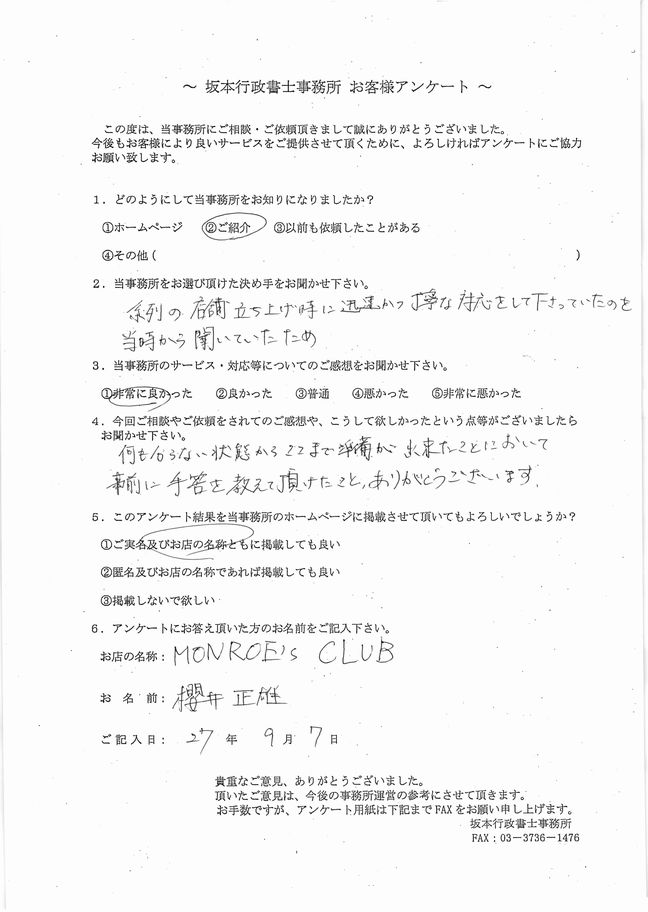 ～ 坂本行政書士事務所 お客様アンケート ～
この度は、当事務所にご相談・ご依頼頂きまして誠にありがとうございました。
今後もお客様により良いサービスをご提供させて頂くために、よろしければアンケートにご協力
お願い致します。
1．どのようにして当事務所をお知りになりましたか？
①ホームページ ②ご紹介 ③以前も依頼したことがある
④その他 ( )
2．当事務所をお選び頂けた決め手をお聞かせ下さい。
系列の店舗立ち上げ時に迅速かつ丁寧な対応をして下さっていたのを
当時から聞いていたため
3．当事務所のサービス・対応等についてのご感想をお聞かせ下さい。
①非常に良かった ②良かった ③普通 ④悪かった ⑤非常に悪かった
4．今回ご相談やご依頼をされてのご感想や、こうして欲しかったという点等がございましたら
お聞かせ下さい。
何も分らない状態からここまで準備が出来たことにおいて
事前に手答を教えて頂けたこと、ありがとうございます。
5．このアンケート結果を当事務所のホームページに掲載させて頂いてもよろしいでしょうか？
①ご実名及びお店の名称ともに掲載しても良い
②匿名及びお店の名称であれば掲載しても良い
③掲載しないで欲しい
6．アンケートにお答え頂いた方のお名前をご記入下さい。
お店の名称： MONROE's CLUB
お 名 前： 櫻井 正雄
ご記入日： 27 年 9 月 7 日
貴重なご意見、ありがとうございました。
頂いたご意見は、今後の事務所運営の参考にさせて頂きます。
お手数ですが、アンケート用紙は下記まで FAX をお願い申し上げます。
坂本行政書士事務所
FAX：03－3736－1476